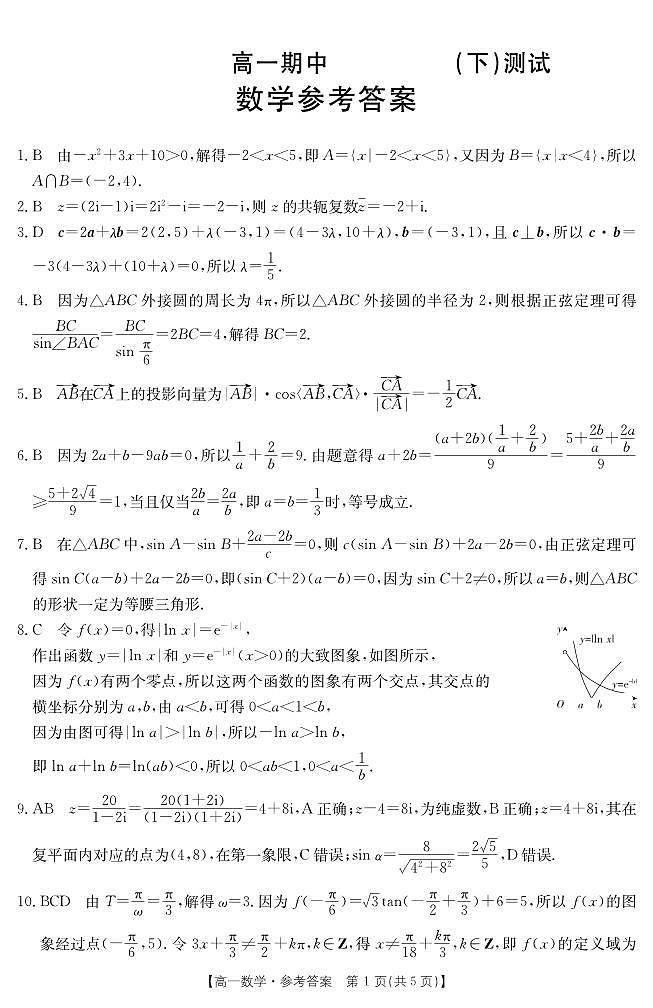 高一期中 (下)测试
数学参考答案
1. B 由-x²+3x+10>0,解得-2<x<5,即A={x|-2<x<5},又因为B={x|x<4},所以
A∩B=(-2,4).
2. B z=(2i-1)i=2i²-i=-2-i,则z的共轭复数z̄=-2+i.
3. D c=2a+λb=2(2,5)+λ(-3,1)=(4-3λ,10+λ),b=(-3,1),且c⊥b,所以c·b=
-3(4-3λ)+(10+λ)=0,所以λ=1/5.
4. B 因为△ABC外接圆的周长为4π,所以△ABC外接圆的半径为2,则根据正弦定理可得
BC/sin∠BAC=BC/sin(π/6)=2BC=4,解得BC=2.
5. B AB→在CA→上的投影向量为|AB→|·cos⟨AB→,CA→⟩·CA→/|CA→|=-1/2 CA→.
6. B 因为2a+b-9ab=0,所以1/a+2/b=9.由题意得a+2b=(a+2b)(1/a+2/b)/9=(5+2b/a+2a/b)/9
≥(5+2√4)/9=1,当且仅当2b/a=2a/b,即a=b=1/3时,等号成立.
7. B 在△ABC中,sin A-sin B+(2a-2b)/c=0,则c(sin A-sin B)+2a-2b=0,由正弦定理可
得sin C(a-b)+2a-2b=0,即(sin C+2)(a-b)=0,因为sin C+2≠0,所以a=b,则△ABC
的形状一定为等腰三角形.
8. C 令f(x)=0,得|ln x|=e^(-|x|),
作出函数y=|ln x|和y=e^(-|x|)(x>0)的大致图象,如图所示,
因为f(x)有两个零点,所以这两个函数的图象有两个交点,其交点的
横坐标分别为a,b,由a<b,可得0<a<1<b,
因为由图可得|ln a|>|ln b|,所以-ln a>ln b,
即ln a+ln b=ln(ab)<0,所以0<ab<1,0<a<1/b.
y
y=|ln x|
y=e^(-|x|)
O a b x
9. AB z=20/(1-2i)=20(1+2i)/((1-2i)(1+2i))=4+8i,A正确;z-4=8i,为纯虚数,B正确;z=4+8i,其在
复平面内对应的点为(4,8),在第一象限,C错误;sin α=8/√(4²+8²)=2√5/5,D错误.
10. BCD 由T=π/ω=π/3,解得ω=3.因为f(-π/6)=√3tan(-π/2+π/3)+6=5,所以f(x)的图
象经过点(-π/6,5).令3x+π/3≠π/2+kπ,k∈Z,得x≠π/18+kπ/3,k∈Z,即f(x)的定义域为
【高一数学·参考答案 第1页(共5页)】